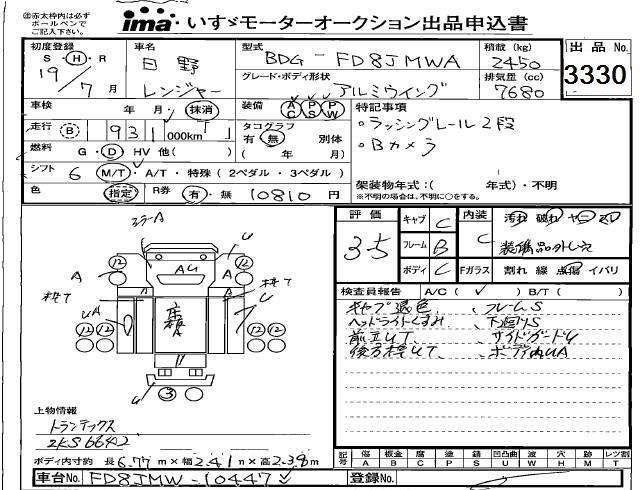 ㊟赤太枠内は必ず
ボールペンで
ご記入下さい。
ima いすゞモーターオークション出品申込書
初度登録 S・H・R 19/7月
車名 日野 レンジャー
型式 BDG-FD8JMWA
グレード・ボディ形状 アルミウイング
積載(kg) 2450
排気量(cc) 7680
出品No. 3330
車検 年 月 抹消
装備 AC PS PW
特記事項
・ラッシングレール2段
・Bカメラ
走行 B 931,000km
タコグラフ 有・無 別体 ( 年 月)
燃料 G・D・HV 他( )
シフト 6 M/T・A/T・特殊(2ペダル・3ペダル)
架装物年式:( 年式)・不明
※不明の場合は、不明に○をする。
色 指定 R券 有・無 10810 円
評価 3.5
キャブ C
フレーム B
ボディ C
内装 C 汚れ 破れ ヤニ
装備品の外し穴
Fガラス 割れ 線 点傷 イバリ
ミラーA
U
12 12
A A AU A A
枠T 枠T
UA 床箱A U
12 12 12 12
U
3
検査員報告 A/C(✓) B/T( )
キャブ退色、フレームS
ヘッドライトくすみ、下廻りS
前立UT、サイドガードU
後方枠UT、ボディ内UA
上物情報
トランテックス
2KS6642
ボディ内寸約 長6.77m×幅2.41m×高2.38m
記号 傷A 板金B 腐C 塗P 錆S 凹凸曲U 波W 穴H 跡M レツ割T
車台No. FD8JMW-10447
登録No.